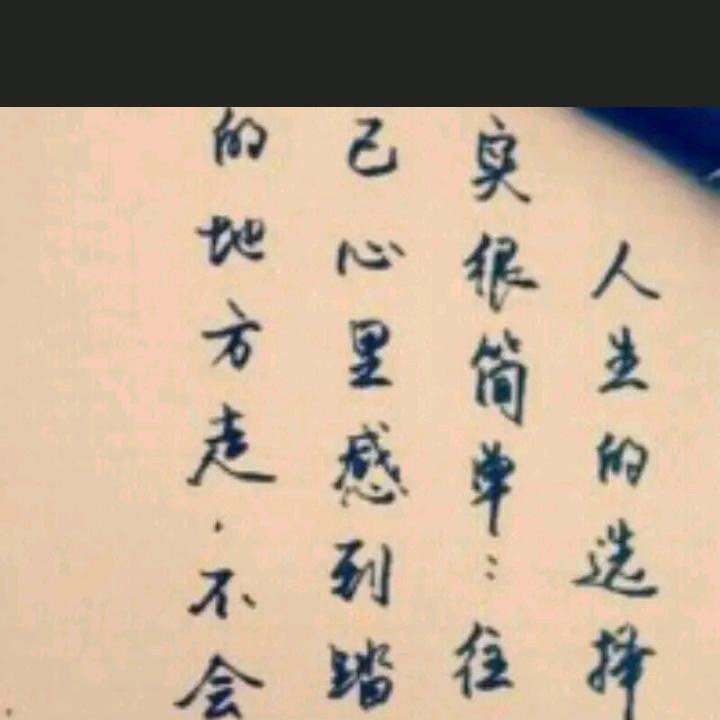 人生的选择
实很简单：往
己心里感到踏
的地方走，不会